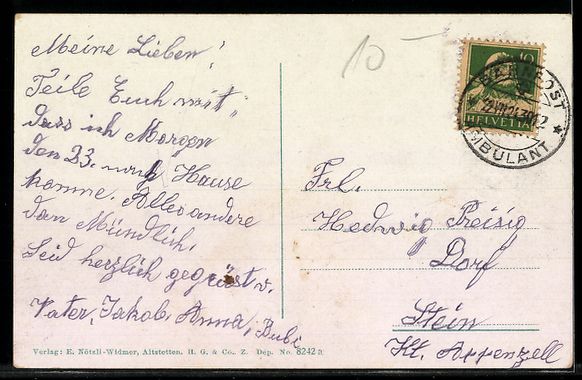 Meine Lieben!
Teile Euch mit,
dass ich Morgen
den 23. nach Hause
komme. Alles andere
dan Mündlich.
Seid herzlich gegrüsst v.
Vater, Jakob, Anna, Bubi
10
10
BAHNPOST
HELVETIA
AMBULANT
Frl.
Hedwig Preisig
Dorf
Stein
Kt. Appenzell
Verlag: E. Nötzli-Widmer, Altstetten. H. G. & Co. Z. Dép. No. 8242 a